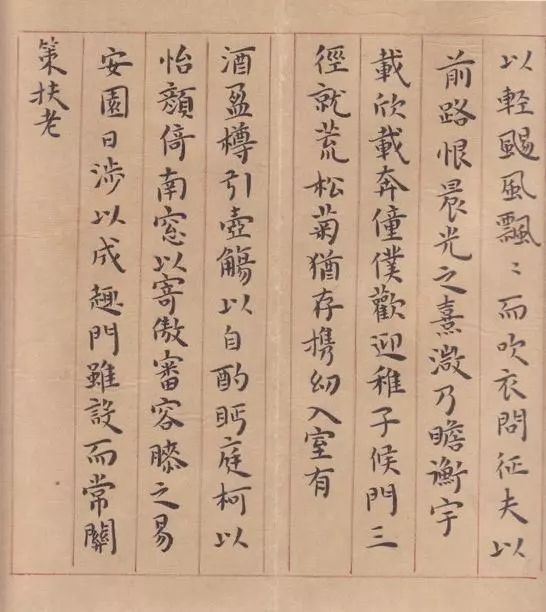 以輕颺風飄〻而吹衣問征夫以
前路恨晨光之熹微乃瞻衡宇
載欣載奔僮僕歡迎稚子候門三
徑就荒松菊猶存携幼入室有
酒盈樽引壺觴以自酌眄庭柯以
怡顏倚南窓以寄傲審容膝之易
安園日涉以成趣門雖設而常關
策扶老